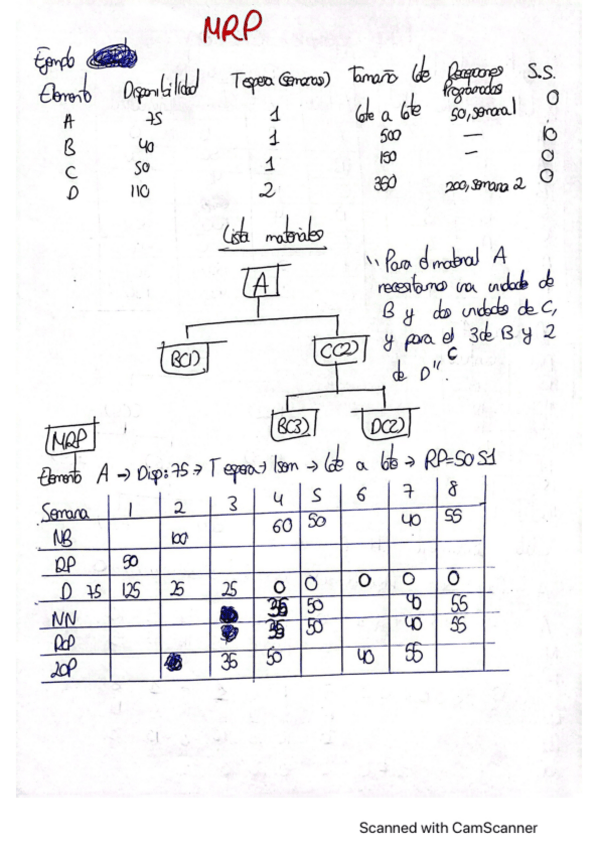 MRP
Ejemplo
Elemento Disponibilidad T espera (semanas) Tamaño lote Recepciones Programadas S.S.
A 75 1 lote a lote 50, semana 1 0
B 40 1 500 — 10
C 50 1 150 — 0
D 110 2 350 200, semana 2 0
Lista materiales
A
B(1) C(2)
B(3) D(2)
"Para el material A
necesitamos una unidad de
B y dos unidades de C,
y para el C 3 de B y 2
de D".
MRP
Elemento A → Disp: 75 → T espera → 1 sem → lote a lote → RP=50 S1
Semana 1 2 3 4 5 6 7 8
NB 100 60 50 40 55
RP 50
D 75 125 25 25 0 0 0 0 0
NN 35 50 40 55
RcP 35 50 40 55
LOP 35 50 40 55
Scanned with CamScanner